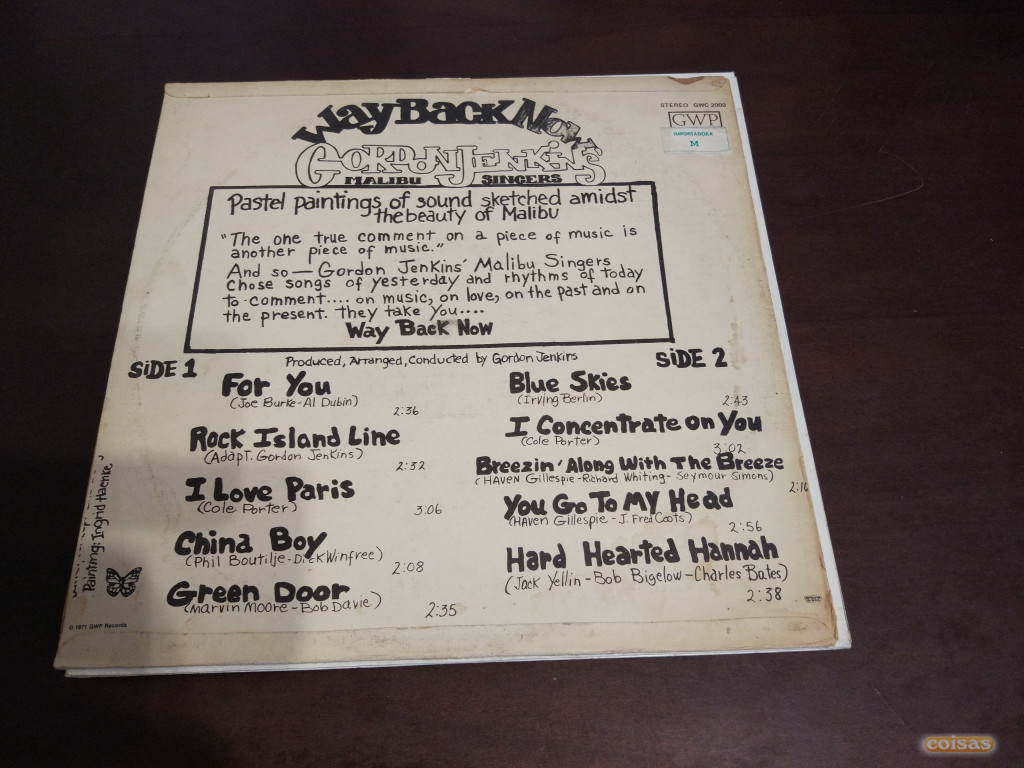 Way Back Now
STEREO GWC 2000
GWP
IMPORTADORA
M
GORDON JENKINS
MALIBU SINGERS
Pastel paintings of sound sketched amidst
the beauty of Malibu
"The one true comment on a piece of music is
another piece of music."
And so— Gordon Jenkins' Malibu Singers
chose songs of yesterday and rhythms of today
to comment.... on music, on love, on the past and on
the present. They take you....
Way Back Now
Produced, Arranged, Conducted by Gordon Jenkins
SiDE 1
For You
(Joe Burke-Al Dubin)
2:36
Rock Island Line
(Adapt. Gordon Jenkins)
2:32
I Love Paris
(Cole Porter)
3:06
China Boy
(Phil Boutilje-Dick Winfree)
2:08
Green Door
(Marvin Moore-Bob Davie)
2:35
SiDE 2
Blue Skies
(Irving Berlin)
2:43
I Concentrate on You
(Cole Porter)
3:02
Breezin' Along With The Breeze
(HAVen Gillespie-Richard Whiting-Seymour Simons)
2:10
You Go To My Head
(HAVen Gillespie-J. Fred Coots)
2:56
Hard Hearted Hannah
(Jack Yellin-Bob Bigelow-Charles Bates)
2:38
Painting: Ingrid Haenke
© 1971 GWP Records
coisas